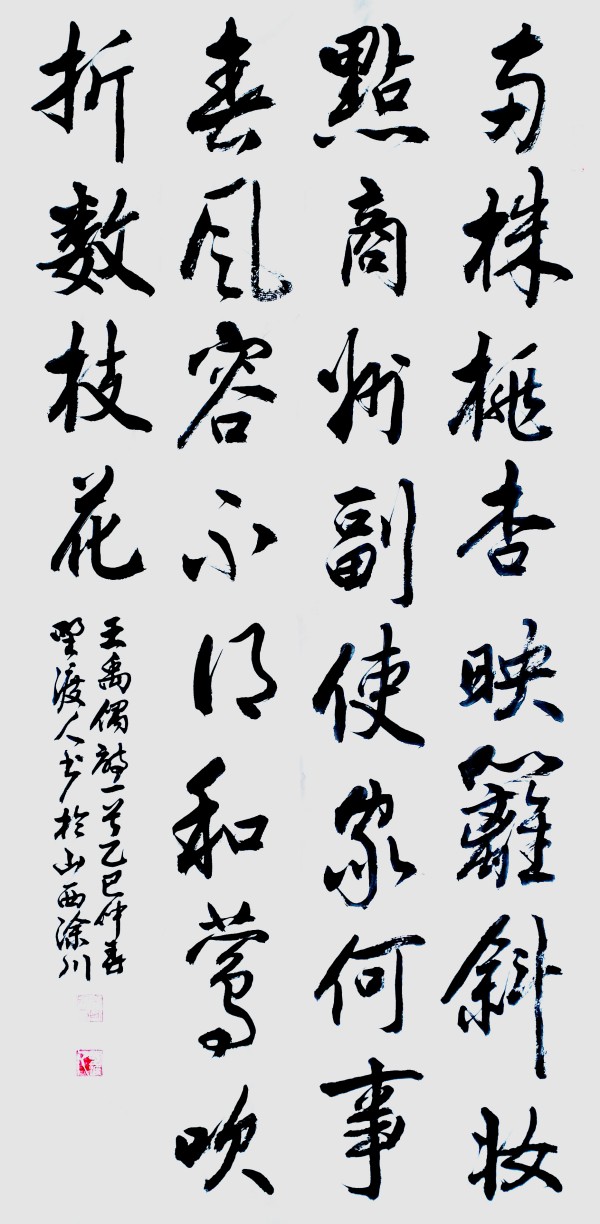 两株桃杏映籬斜妆
點商州副使家何事
春风容不得和莺吹
折数枝花
王禹偁詩一首乙巳仲春
野渡人书於山西涂川